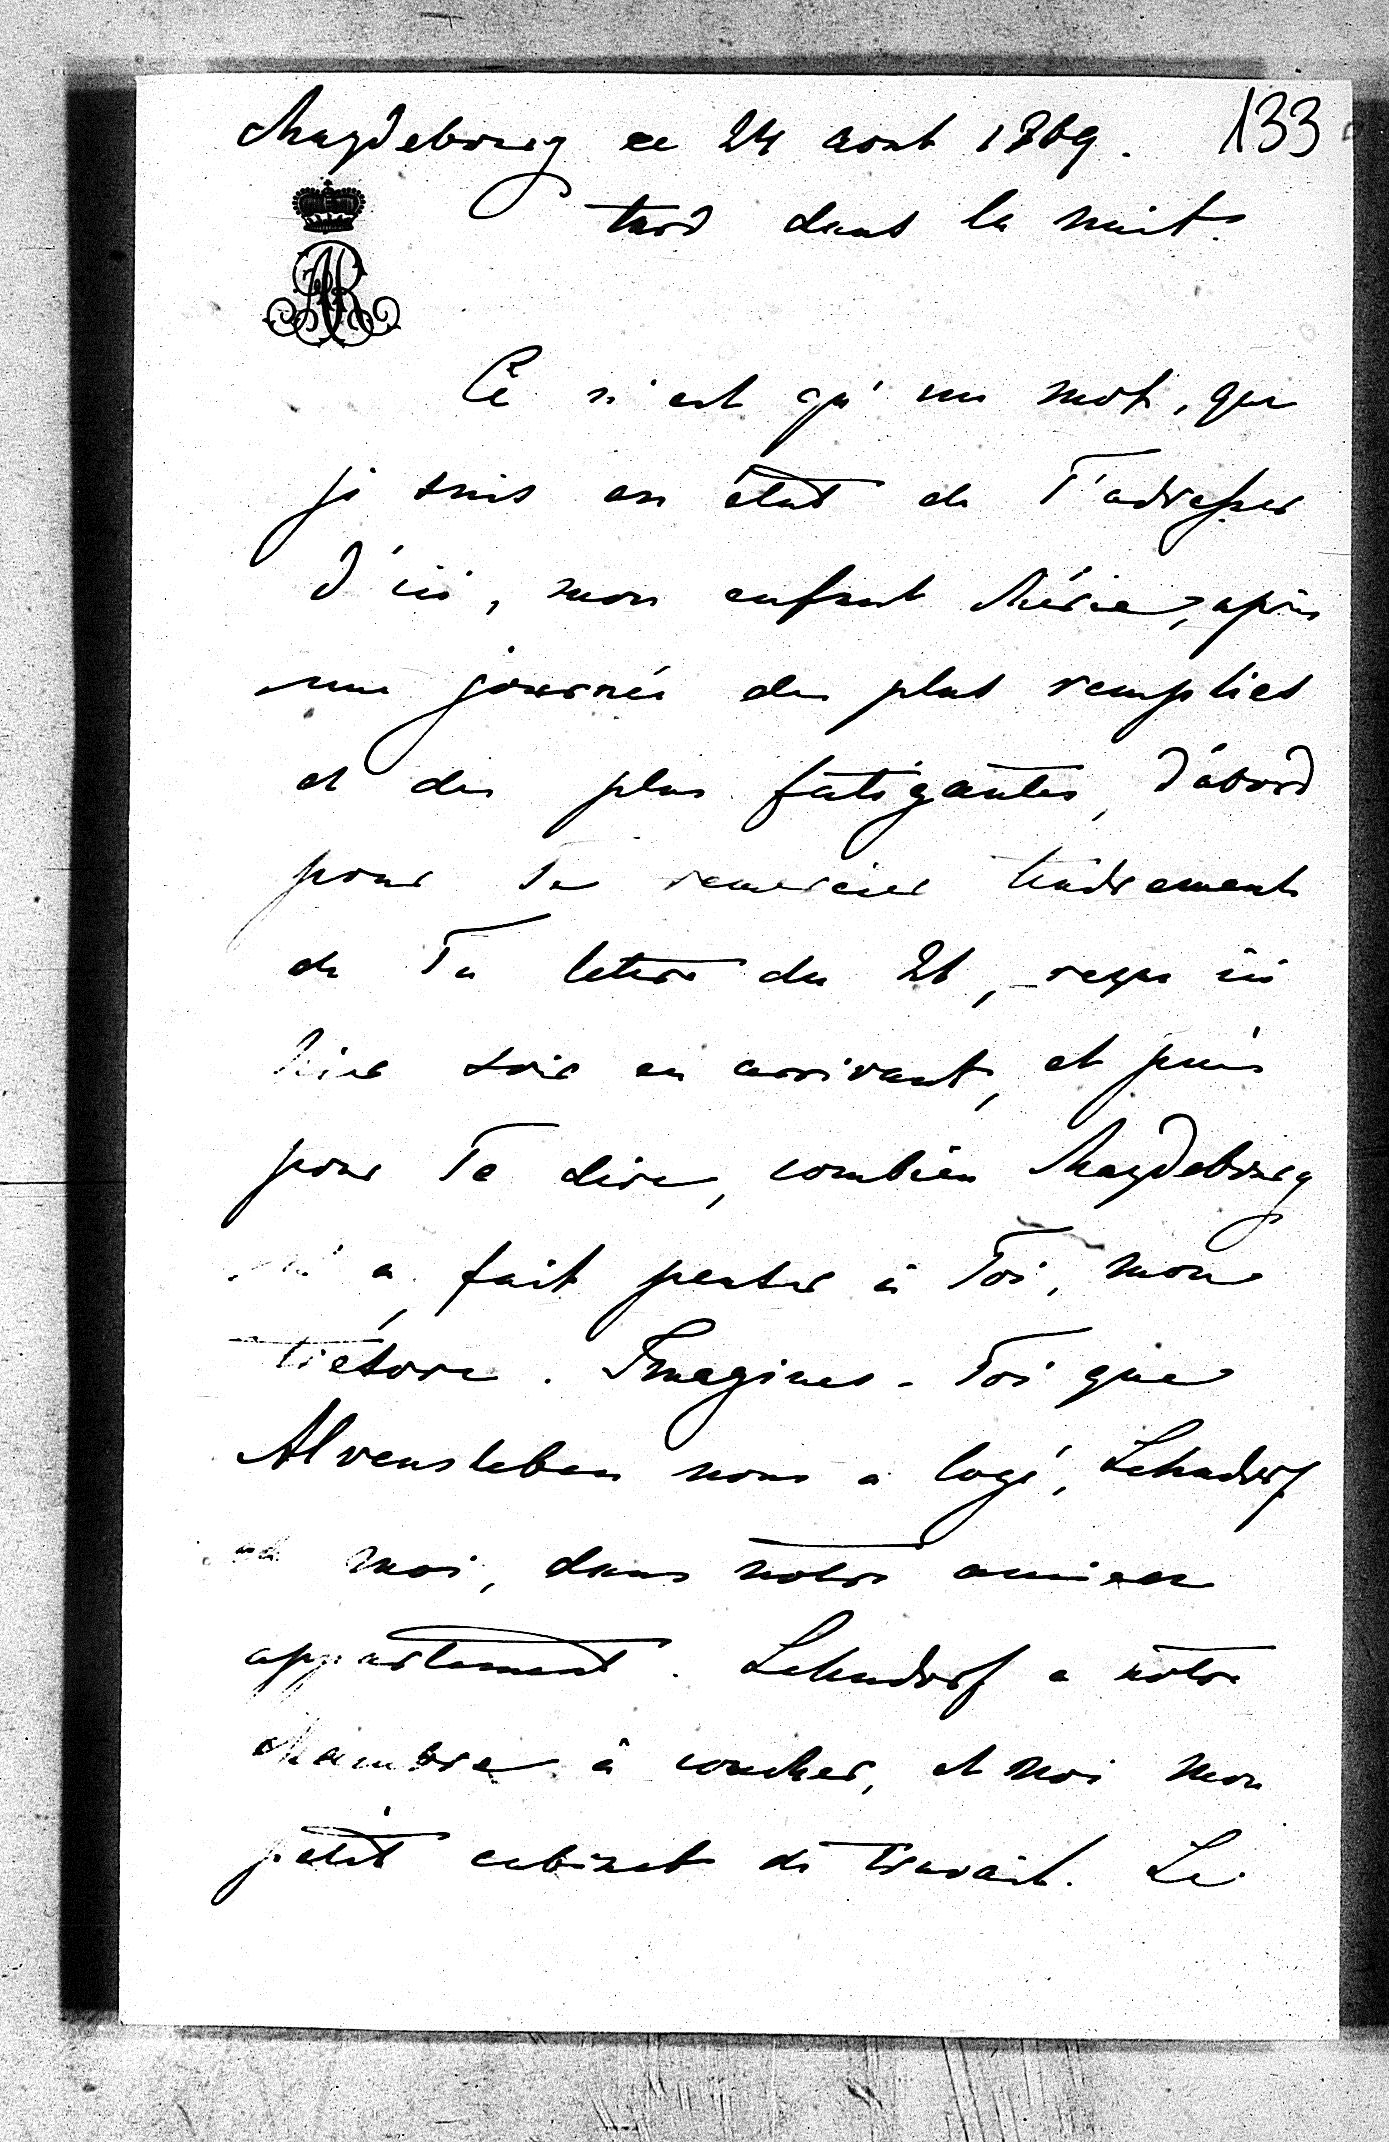 133
Magdebourg ce 24 aout 1869.
tard dans la nuit.
AR
Ce n'est qu'un mot, que
je suis en état de T'adresser
d'ici, mon enfant chérie, après
une journée des plus remplies
et des plus fatigantes, d'abord
pour Te remercier tendrement
de Ta lettre du 21, reçue ici
hier soir en arrivant, et puis
pour Te dire, combien Magdebourg
m'a fait penser à Toi, mon
trésore. Imagines-Toi que
Alvensleben nous a logé, Lehndorf
et moi, dans notre ancien
appartement. Lehndorf a notre
chambre à coucher, et moi mon
petit cabinet de travail. Le